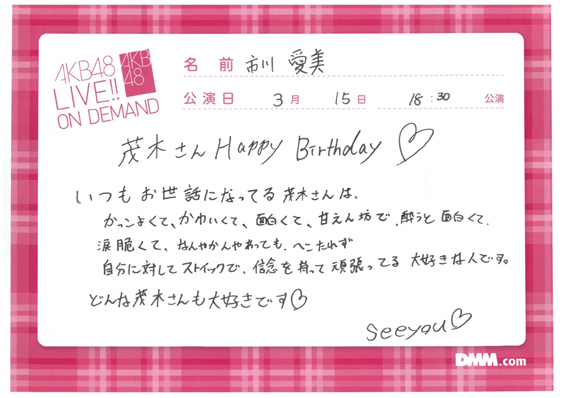 AKB48
LIVE!!
ON DEMAND
AKB
48
名前 市川 愛美
公演日 3月 15日 18:30 公演
茂木さん Happy Birthday ♡
いつもお世話になってる茂木さんは、
かっこよくて、かわいくて、面白くて、甘えん坊で、酔うと面白くて、
涙脆くて、なんやかんやあっても、へこたれず
自分に対してストイックで、信念を持って頑張ってる 大好きな人です。
どんな茂木さんも大好きです♡
seeyou♡
DMM.com